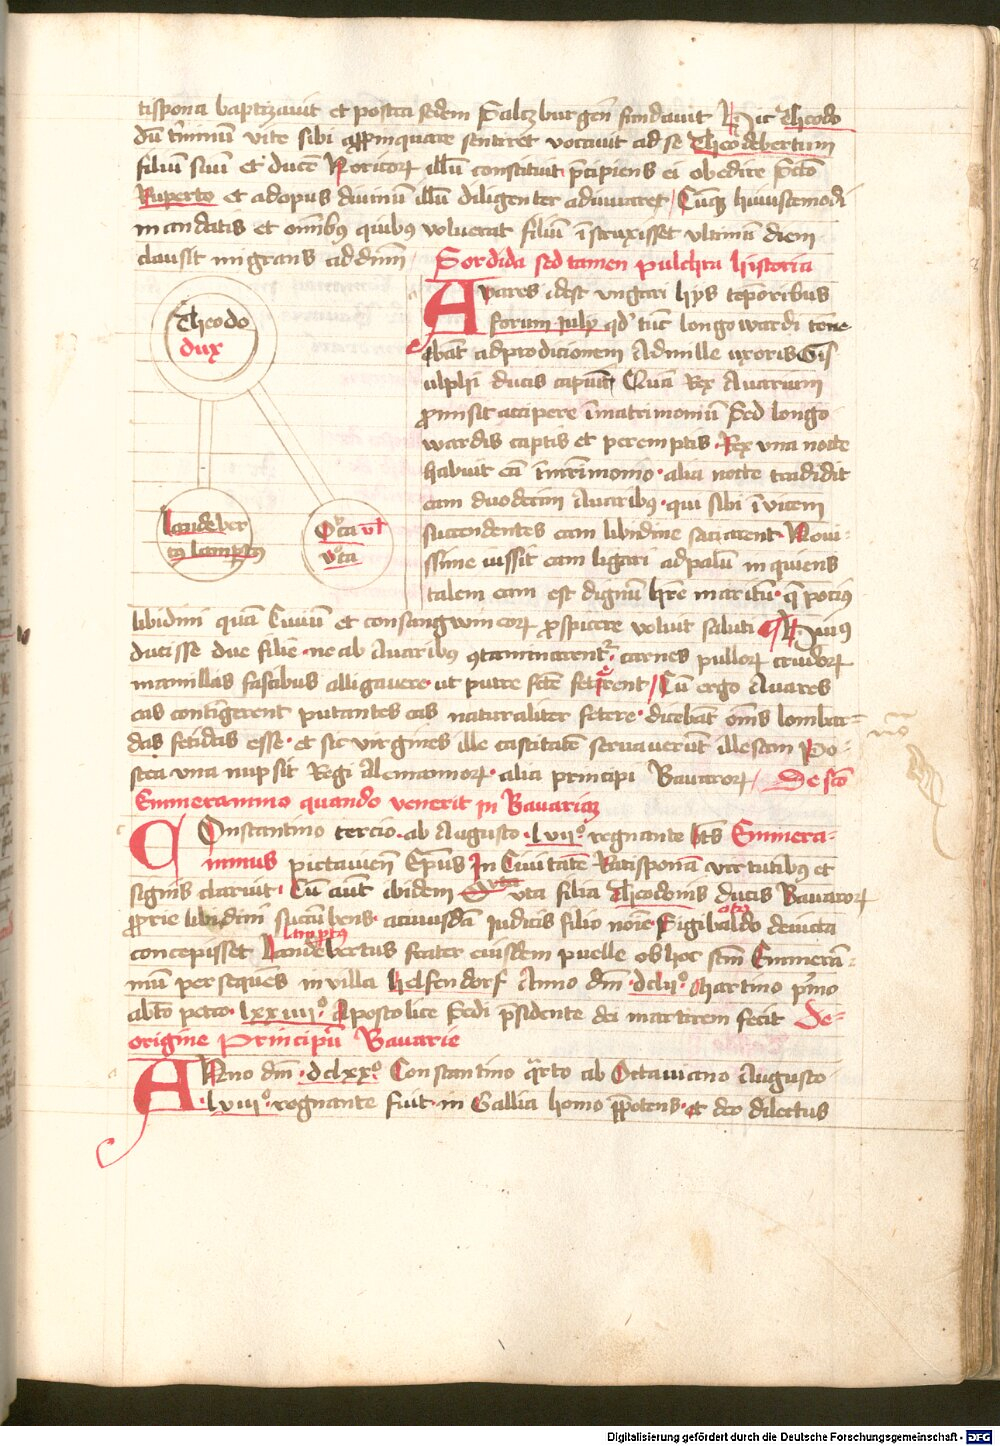 tispona baptizavit et postea sedem Salczburgen̄ fundavit Hic Theodo
dū t̄minū vite sibi app̄inquare sentiret vocavit ad se Theodebertum
filiū suū et ducē Noricoꝝ illū constituit p̄cipiens ei obedire s̄cto
Ruperto et ad opus divinū illū diligenter adiuvaret / Cūqꝫ huiuscemodi
mandatis et om̄ibꝯ quibꝯ voluerat filiū īstruxisset ultimū diem
clausit migrans ad dn̄m / Sordida sed tamen pulchra historia
Avares idest vngari hys tēporibus
forum iuly qd' tūc longowardi tene
bāt ad prodicionem Ad mille uxoris Gis
ulphi ducis capiūt / Quā Rex Avarum
promisit accipere ī matrimoniū Sed longo
wardis captis et peremptis Rex una nocte
habuit eā ī m̄rimonio alia nocte tradidit
eam duodecim Avaribꝯ qui sibi īvicem
succendentes eam libidine saciarent Novi-
ssime iussit eam ligari ad palū inquiens
talem eam est dignū hr̄e maritū q̄ pociꝯ
Theodo
dux
Landeber
tꝯ lamp̄tꝯ
Ota vl'
vta
libidini quā Civiū et consangwineoꝝ prospicere voluit saluti Huiꝯ
ducisse due filie ne ab Avaribꝯ ꝯtaminarent' carnes pulloꝝ crudoꝝ
mamillas fascibus alligavere ut putre fc̄te feterent / Cū ergo Avares
eas contīgerent putantes eas naturaliter fetere dicebāt om̄s lombar-
das fetidas esse et sic virgines ille castitatē servaverūt illesam Po-
stea una nupsit Regi Alemannoꝝ alia principi Bavaroꝝ / De sc̄o
Emmerammo quando venerit in Bavariaꝫ
Constantino tercio ab Augusto lvii° regnante bt̄s Emmera-
mmus pictavien̄ Ep̄us In Civitate Ratisponā virtutibꝯ et
signis claruit Cū aūt ibidem vta filia Theodonis ducis Bavaroꝝ
proprie libidini succūbens a cuiusdā Iudicis filio noīe Sigibaldo devicta
concepisset lamp̄tꝯ Landebertus frater eiusdem puelle ob hoc scm̄ Emmerā-
mū persequēs in villa Helfendorf Anno dn̄i dclii° Martino p̄mo
ab bt̄o petro lxxiiii° Apostolice Sedi p̄sidente dei martirem fecit De
origine Principū Bavarie
Anno dn̄i dclxx° Constantino q̄rto ab Octaviano Augusto
lviii° regnante fuit in Gallia homo p̄potens et deo dilectus
Digitalisierung gefördert durch die Deutsche Forschungsgemeinschaft - DFG